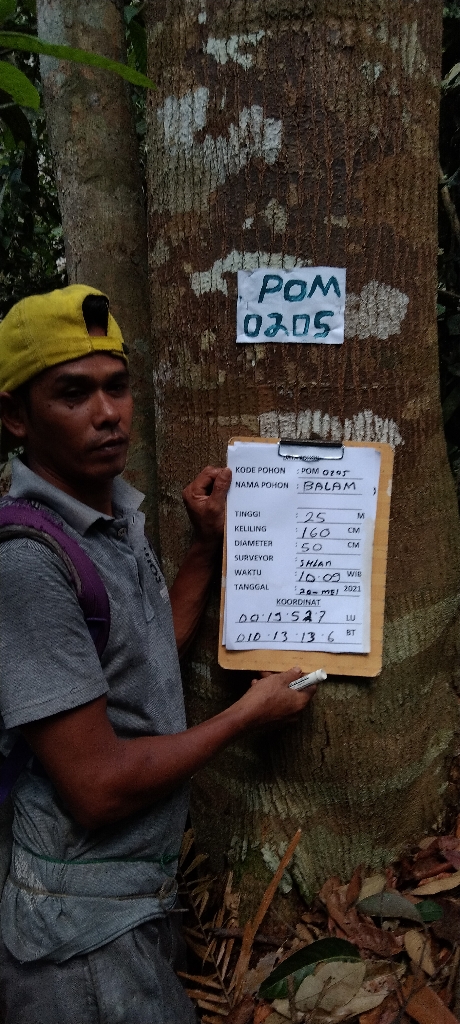 POM
0205
KODE POHON : POM 0205
NAMA POHON : BALAM
TINGGI : 25 M
KELILING : 160 CM
DIAMETER : 50 CM
SURVEYOR : IHSAN
WAKTU : 10.09 WIB
TANGGAL : 20-MEI 2021
KOORDINAT
00.15.527 LU
010.13.13.6 BT